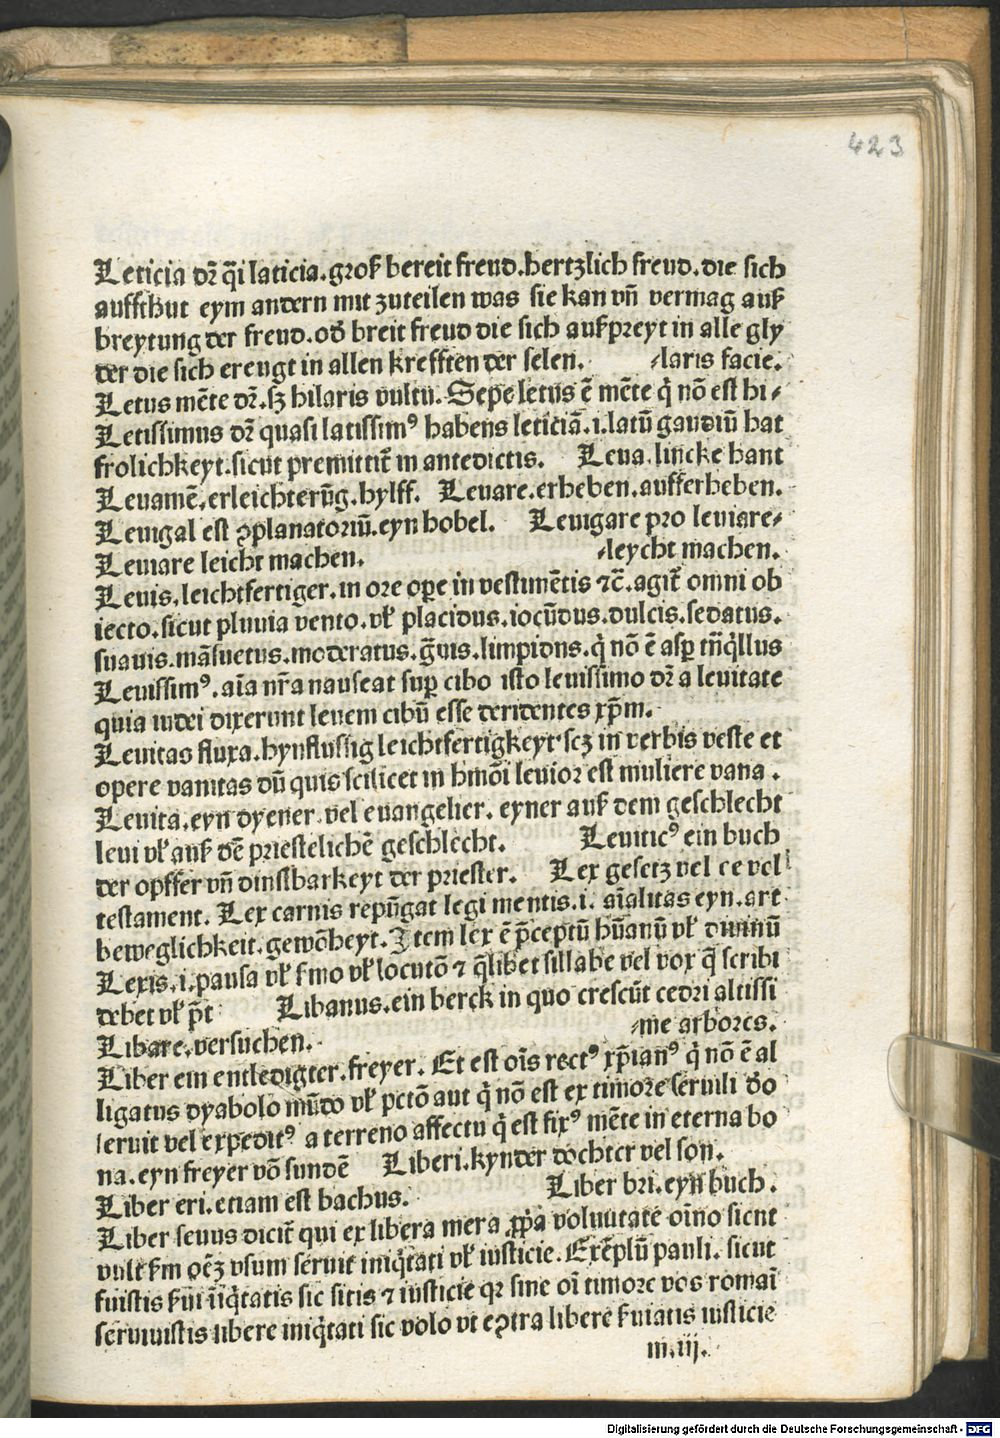 423
Leticia dr̄ q̄i laticia.groſʒ bereit freud.hertzlich freud.die sich
auffthut eym andern mit zuteilen was sie kan vn̄ vermag auſʒ
breytung der freud.od̕ breit freud die sich auſʒpreyt in alle gly
der die sich ereugt in allen krefften der selen. ⸗laris facie.
Letus mēte dr̄.sʒ hilaris vultu. Sepe letus ē mēte q̇ nō est hi⸗
Letissimus dr̄ quasi latissimꝰ habens leticiā.i.latū gaudiū hat
frolichkeyt.sicut premittit̄ in antedictis. Leua.lincke hant
Leuamē.erleichterūg.hylff. Leuare.erheben.aufferheben.
Leuigal est ꝯplanatoriū.eyn hobel. Leuigare pro leuiare⸗
Leuiare leicht machen. ⸗leycht machen.
Leuis.leichtfertiger.in ore oꝑe in vestimētis ⁊c̄.agit̄ omni ob
iecto.sicut pluuia vento.vl̕ placidus.iocūdus.dulcis.sedatus.
suauis.māsuetus.moderatus.ḡuis.limpidus.q̇ nō ē asꝑ tn̄q̇llus
Leuissimꝰ.aīa nr̄a nauseat suꝑ cibo isto leuissimo dr̄ a leuitate
quia iudei dixerunt leuem cibū esse deridentes xp̄m.
Leuitas fluxa.hynflussig leichtfertigkeyt scʒ in verbis veste et
opere vanitas dū quis scilicet in hmōi leuior est muliere vana.
Leuita.eyn dyener vel euangelier. eyner auſʒ dem geschlecht
leui vl̕ auſʒ dē priestelichē geschlecht. Leuiticꝰ ein buch
der opffer vn̄ dinstbarkeyt der priester. Lex gesetz vel ce vel
testament. Lex carnis repūgat legi mentis.i. aīalitas eyn.art
beweglichkeit.gewōheyt.Item lex ē p̄ceptū hūanū vl̕ diuinū
Lexis.i.pausa vl̕ s̕mo vl̕ locutō ⁊ q̄libet sillabe vel vox q̄ scribi
debet vl̕ p̄t Libanus.ein berck in quo crescūt cedri altissi
Libare.versuchen. ⸗me arbores.
Liber ein entledigter.freyer. Et est oīs rectꝰ xp̄ianꝰ q̇ nō ē al
ligatus dyabolo mūdo vl̕ pctō aut q̇ nō est ex timore seruili do
seruit vel expeditꝰ a terreno affectu q̇ est fixꝰ mēte in eterna bo
na.eyn freyer vō sundē Liberi.kynder dochter vel son.
Liber eri.etiam est bachus. Liber bri.eyn buch.
Liber seuus dicit̄ qui ex libera mera ꝓp̄a voluutate oīno sicut
vult s̕m oēʒ vsum seruit iniq̇tati vl̕ iusticie. Exēplū pauli. sicut
fuistis s̕ui īiq̇tatis sic sitis ⁊ iusticie qr sine oī timore vos romaī
seruiuistis libere iniq̇tati sic volo vt eꝯtra libere s̕uiatis iusticie
m.iij.
Digitalisierung gefördert durch die Deutsche Forschungsgemeinschaft - DFG